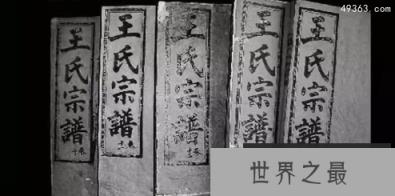 49363.com
王氏宗譜
王氏宗譜
王氏宗譜
王氏宗譜
王氏宗譜
世界之最